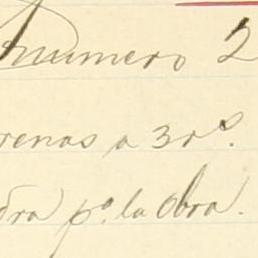 numero 2
renas a 3 rs.
dra po. la obra.